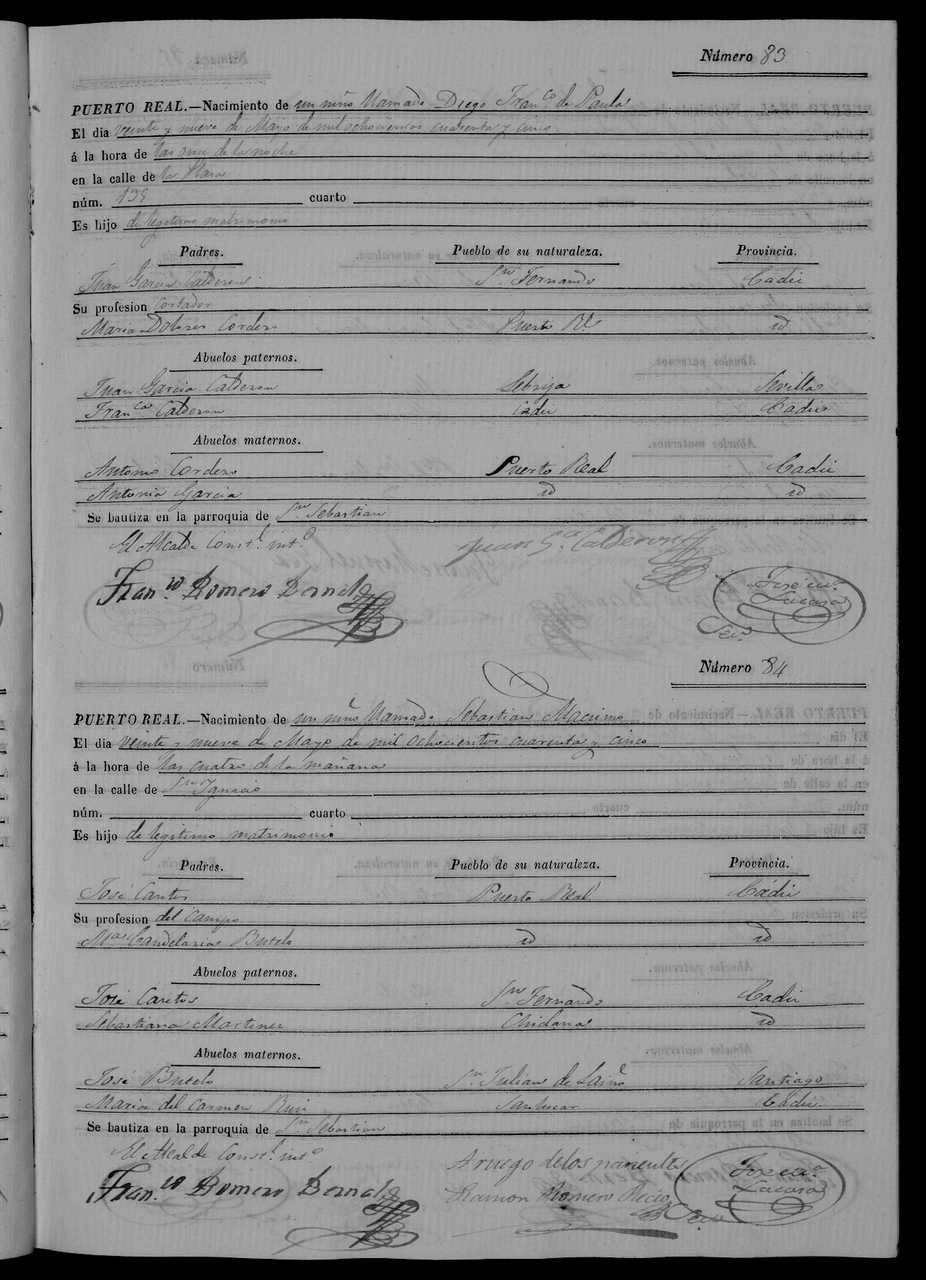 Número 83
PUERTO REAL.—Nacimiento de un niño llamado Diego Fran.co de Paula
El dia veinte y nueve de Mayo de mil ochocientos cuarenta y cinco
á la hora de las once de la noche
en la calle de la Plaza
núm. 139 cuarto
Es hijo de legitimo matrimonio
Padres. Pueblo de su naturaleza. Provincia.
Juan Garcia Calderon S.n Fernando Cadiz
Su profesion Cortador
Maria Dolores Cordero Puerto R.l id
Abuelos paternos.
Juan Garcia Calderon Lebrija Sevilla
Fran.ca Calderon Cadiz Cadiz
Abuelos maternos.
Antonio Cordero Puerto Real Cadiz
Antonia Garcia id id
Se bautiza en la parroquia de S.n Sebastian
El Alcalde Const.l int.o
Juan G.a Calderon
Fran.co Romero Bernal
José m.a
Lacasa
Srio.
Número 84
PUERTO REAL.—Nacimiento de un niño llamado Sebastian Macsimo
El dia veinte y nueve de Mayo de mil ochocientos cuarenta y cinco
á la hora de las cuatro de la mañana
en la calle de S.n Ygnacio
núm. cuarto
Es hijo de legitimo matrimonio
Padres. Pueblo de su naturaleza. Provincia.
José Cantos Puerto Real Cádiz
Su profesion del campo
M.a Candelaria Buselo id id
Abuelos paternos.
José Cantos S.n Fernando Cadiz
Sebastiana Martinez Chiclana id
Abuelos maternos.
José Buselo S.n Julian de Laiño Santiago
Maria del Carmen Ruiz Sanlucar Cadiz
Se bautiza en la parroquia de S.n Sebastian
El Alcalde Const.l int.o
A ruego de los parientes
Fran.co Romero Bernal
Ramon Romero Recio
José m.a
Lacasa
Srio.